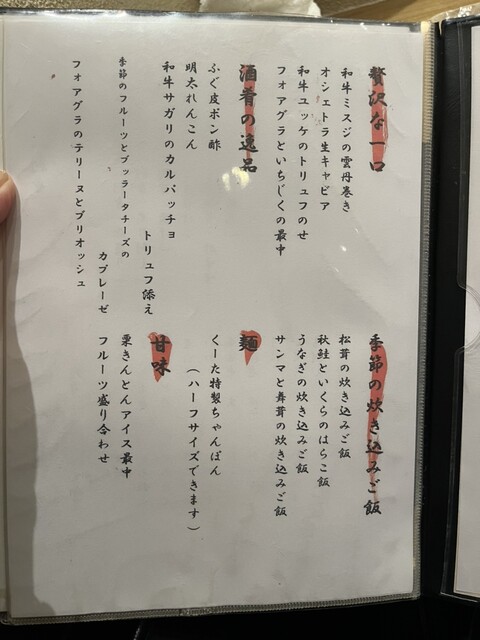 贅沢な一口
和牛ミスジの雲丹巻き
オシェトラ生キャビア
和牛ユッケのトリュフのせ
フォアグラといちじくの最中
酒肴の逸品
ふぐ皮ポン酢
明太れんこん
和牛サガリのカルパッチョ
トリュフ添え
季節のフルーツとブッラータチーズの
カプレーゼ
フォアグラのテリーヌとブリオッシュ
季節の炊き込みご飯
松茸の炊き込みご飯
秋鮭といくらのはらこ飯
うなぎの炊き込みご飯
サンマと舞茸の炊き込みご飯
麺
くーた特製ちゃんぽん
（ハーフサイズできます）
甘味
栗きんとんアイス最中
フルーツ盛り合わせ